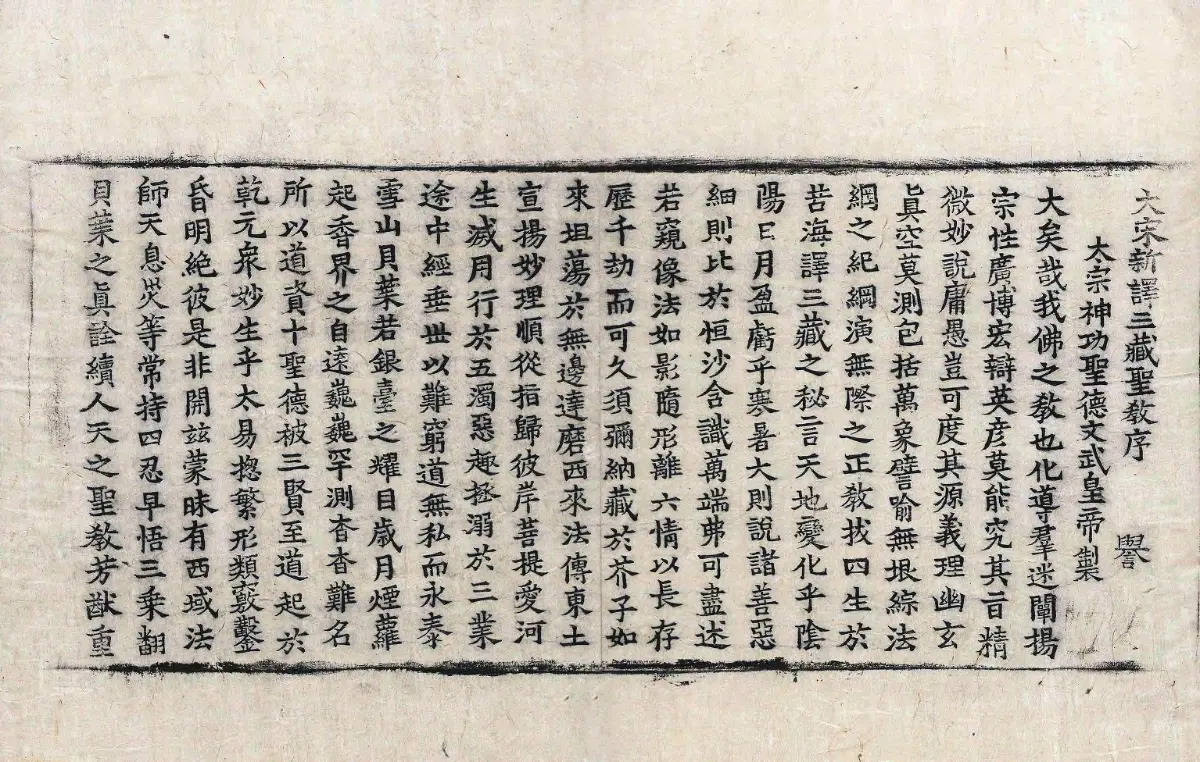 大宋新譯三藏聖教序 譽
太宗神功聖德文武皇帝製
大矣哉我佛之教也化導羣迷闡揚
宗性廣博宏辯英彥莫能究其旨精
微妙說庸愚豈可度其源義理幽玄
眞空莫測包括萬象譬喻無垠綜法
綱之紀綱演無際之正教拔四生於
苦海譯三藏之秘言天地變化乎陰
陽日月盈虧乎寒暑大則說諸善惡
細則比於恒沙含識萬端弗可盡述
若窺像法如影隨形離六情以長存
歷千劫而可久須彌納藏於芥子如
來坦蕩於無邊達磨西來法傳東土
宣揚妙理順從指歸彼岸菩提愛河
生滅用行於五濁惡趣拯溺於三業
途中經垂世以難窮道無私而永泰
雪山貝葉若銀臺之耀目歲月煙蘿
起香界之自遠巍巍罕測杳杳難名
所以道資十聖德被三賢至道起於
乾元衆妙生乎太易揔繁形類竅鑿
昏明絶彼是非開茲蒙昧有西域法
師天息災等常持四忍早悟三乘翻
貝葉之眞詮續人天之聖教芳猷重